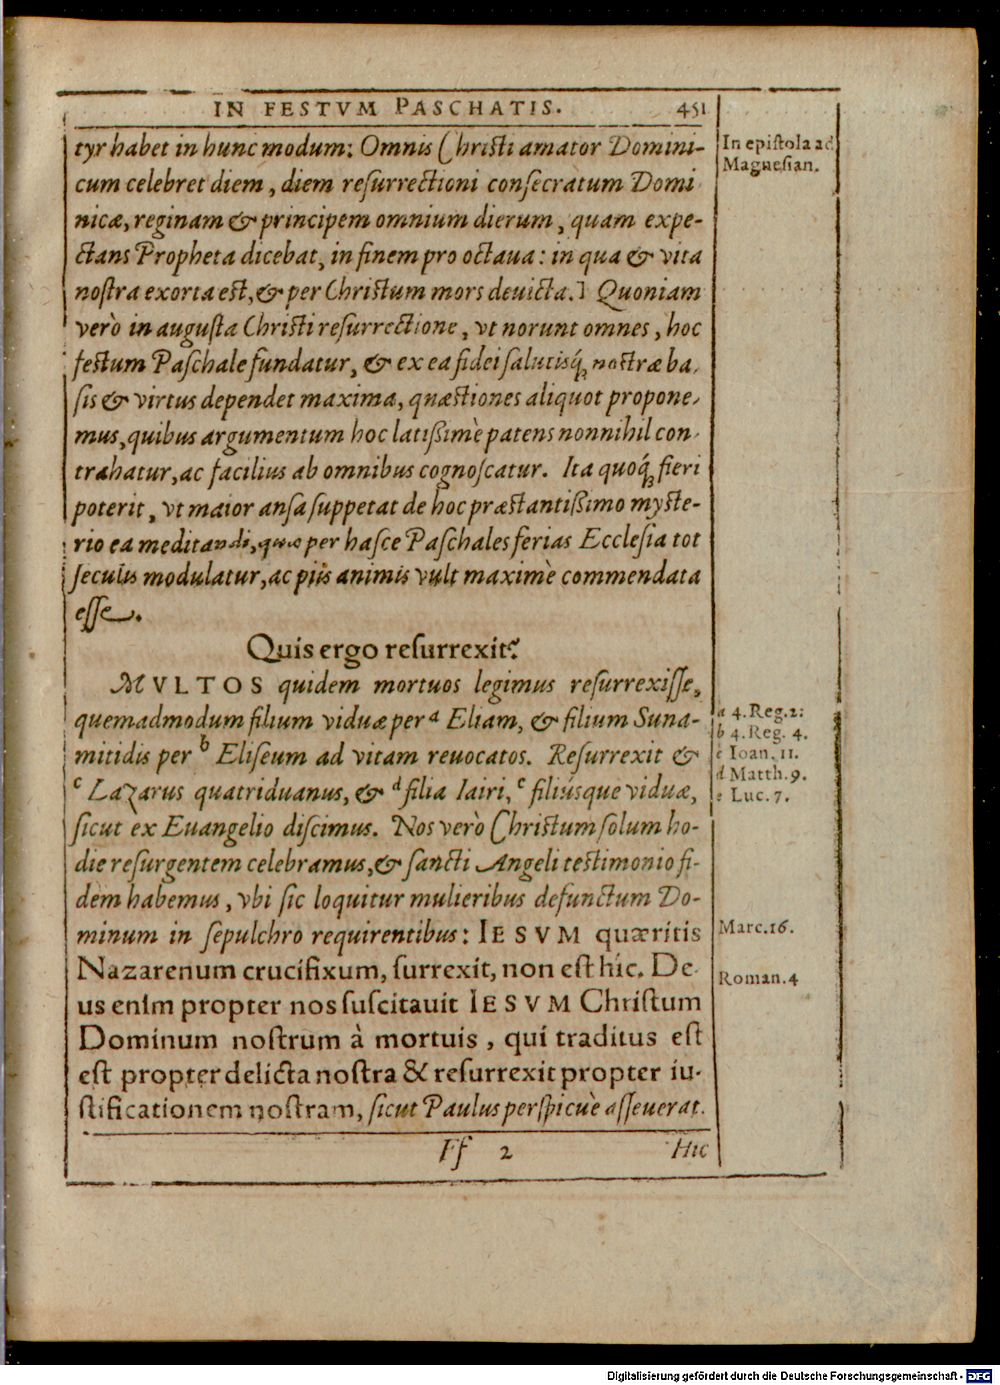 IN FESTVM PASCHATIS. 451
tyr habet in hunc modum: Omnis Christi amator Domini-
cum celebret diem, diem resurrectioni consecratum Domi
nicæ, reginam & principem omnium dierum, quam expe-
ctans Propheta dicebat, in finem pro octaua: in qua & vita
nostra exorta est, & per Christum mors deuicta.] Quoniam
verò in augusta Christi resurrectione, vt norunt omnes, hoc
festum Paschale fundatur, & ex ea fidei salutisq́; nostræ ba-
sis & virtus dependet maxima, quæstiones aliquot propone-
mus, quibus argumentum hoc latißimè patens nonnihil con-
trahatur, ac facilius ab omnibus cognoscatur. Ita quoq́; fieri
poterit, vt maior ansa suppetat de hoc præstantißimo myste-
rio ea meditandi, quæ per hasce Paschales ferias Ecclesia tot
seculis modulatur, ac piis animis vult maximè commendata
esse.
Quis ergo resurrexit?
MVLTOS quidem mortuos legimus resurrexisse,
quemadmodum filium viduæ per a Eliam, & filium Suna-
mitidis per b Eliseum ad vitam reuocatos. Resurrexit &
c Lazarus quatriduanus, & d filia Iairi, e filiúsque viduæ,
sicut ex Euangelio discimus. Nos verò Christum solum ho-
die resurgentem celebramus, & sancti Angeli testimonio fi-
dem habemus, vbi sic loquitur mulieribus defunctum Do-
minum in sepulchro requirentibus: IESVM quæritis
Nazarenum crucifixum, surrexit, non est hic. De-
us enim propter nos suscitauit IESVM Christum
Dominum nostrum à mortuis, qui traditus est
est propter delicta nostra & resurrexit propter iu-
stificationem nostram, sicut Paulus perspicuè asseuerat.
Ff 2 Hic
In epistola ad
Magnesian.
a 4. Reg. 2:
b 4. Reg. 4.
c Ioan. 11.
d Matth. 9.
e Luc. 7.
Marc. 16.
Roman. 4
Digitalisierung gefördert durch die Deutsche Forschungsgemeinschaft - DFG